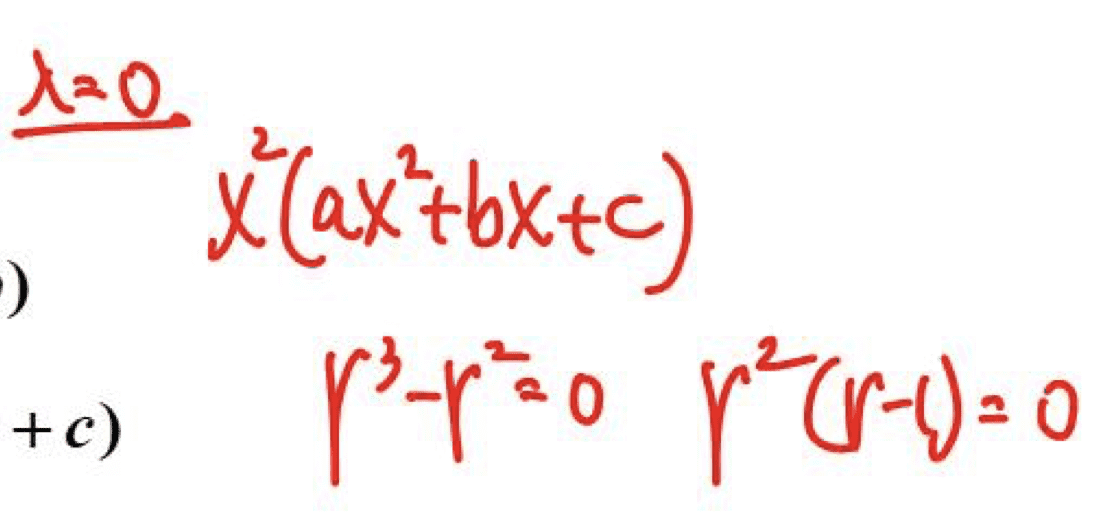 λ=0
x²(ax²+bx+c)
)
r³-r²=0 r²(r-1)=0
+c)